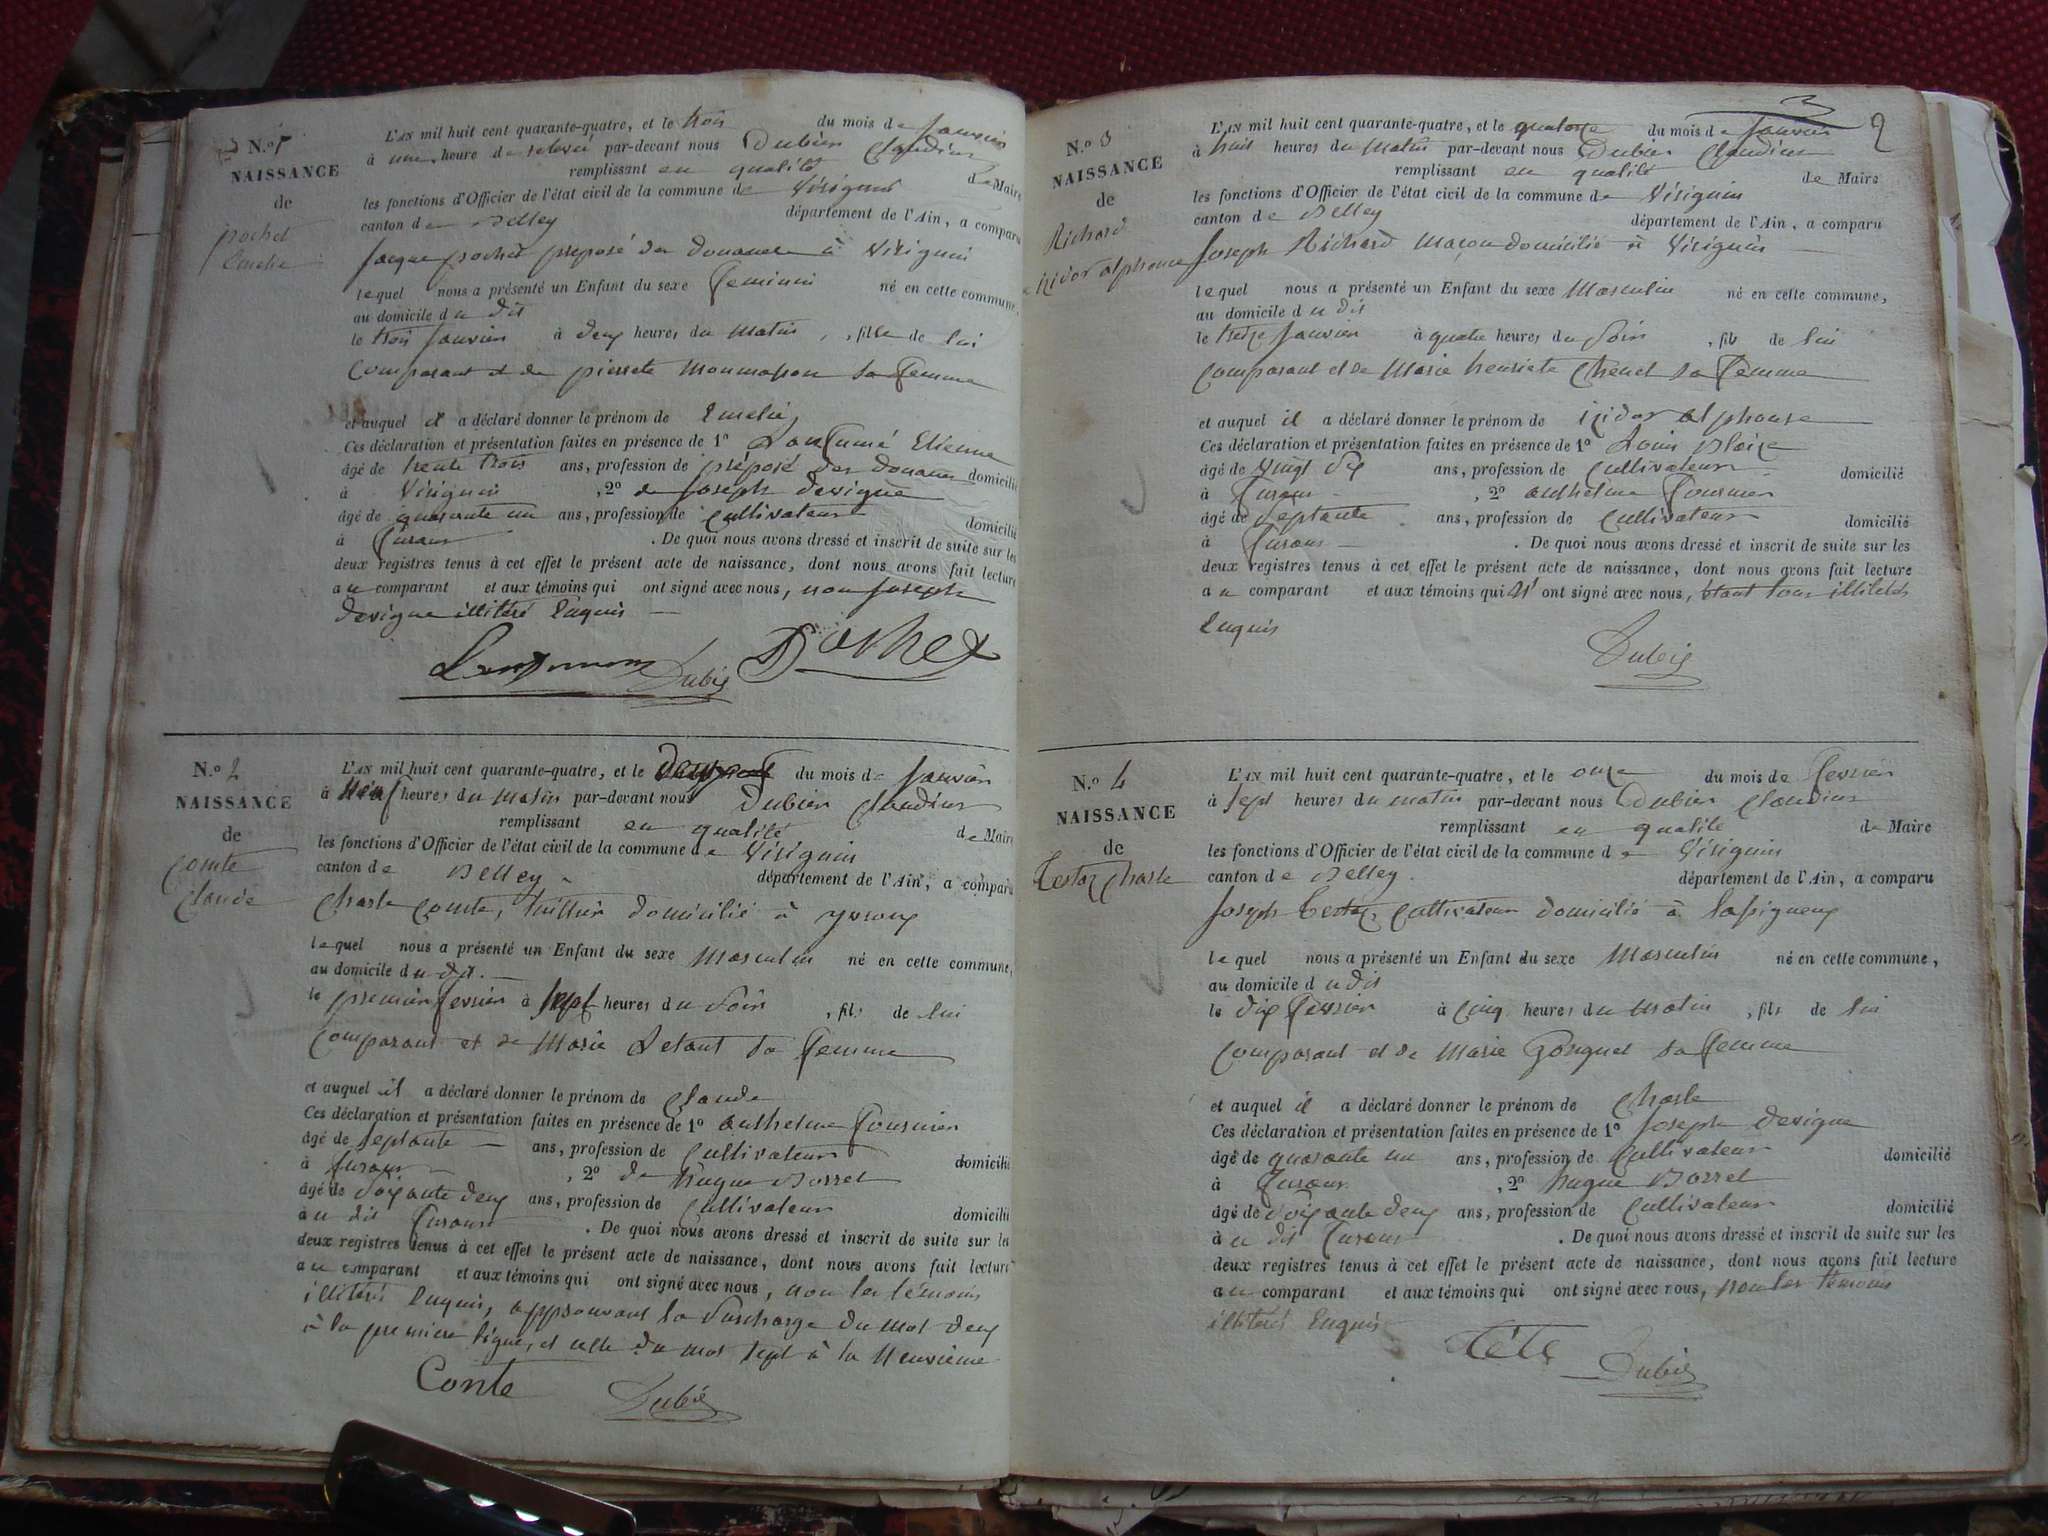 N.º 1
NAISSANCE
de
pochet
Emelie
L'AN mil huit cent quarante-quatre, et le trois du mois de Janvier
à une heure de relevé par-devant nous Dubier Claudius
remplissant en qualité de Maire
les fonctions d'Officier de l'état civil de la commune de Virignin
canton de Belley département de l'Ain, a comparu
Jacque pochet preposé des douanes à Virignin
lequel nous a présenté un Enfant du sexe feminin né en cette commune,
au domicile du dit
le trois Janvier à deux heures du matin, fille de lui
comparant et de pierrete Monmasson sa femme
et auquel il a déclaré donner le prénom de Emelie
Ces déclaration et présentation faites en présence de 1º Etienne
âgé de trente trois ans, profession de préposé des douanes domicilié
à Virignin, 2º de Joseph devigne
âgé de quarante un ans, profession de cultivateur domicilié
à . De quoi nous avons dressé et inscrit de suite sur les
deux registres tenus à cet effet le présent acte de naissance, dont nous avons fait lecture
au comparant et aux témoins qui ont signé avec nous, non Joseph
devigne illitéré Enquis
Dubié Pochet
N.º 2
NAISSANCE
de
Comte
Claude
L'AN mil huit cent quarante-quatre, et le deux du mois de Janvier
à Neuf heures du matin par-devant nous Dubier Claudius
remplissant en qualité de Maire
les fonctions d'Officier de l'état civil de la commune de Virignin
canton de Belley département de l'Ain, a comparu
Charle Comte, domicilié à
lequel nous a présenté un Enfant du sexe Masculin né en cette commune,
au domicile du dit
le premier fevrier à sept heures du soir, fils de lui
comparant et de Marie Letant sa femme
et auquel il a déclaré donner le prénom de Claude
Ces déclaration et présentation faites en présence de 1º anthelme fournier
âgé de septante ans, profession de cultivateur domicilié
à , 2º de hugue Borret
âgé de soixante deux ans, profession de cultivateur domicilié
au dit . De quoi nous avons dressé et inscrit de suite sur les
deux registres tenus à cet effet le présent acte de naissance, dont nous avons fait lecture
au comparant et aux témoins qui ont signé avec nous, non les témoins
illitérés Enquis, approuvant la surcharge du mot deux
à la premiere ligne, et celle du mot sept à la Neuvieme
Conte Dubié
2
N.º 3
NAISSANCE
de
Richard
izidor alphonse
L'AN mil huit cent quarante-quatre, et le quatorze du mois de Janvier
à huit heures du matin par-devant nous Dubier Claudius
remplissant en qualité de Maire
les fonctions d'Officier de l'état civil de la commune de Virignin
canton de Belley département de l'Ain, a comparu
Joseph Richard Maçon domicilié à Virignin
lequel nous a présenté un Enfant du sexe Masculin né en cette commune,
au domicile du dit
le treize Janvier à quatre heures du soir, fils de lui
comparant et de Marie henriete Chenet sa femme
et auquel il a déclaré donner le prénom de izidor alphonse
Ces déclaration et présentation faites en présence de 1º Louis Blaize
âgé de vingt dix ans, profession de cultivateur domicilié
à , 2º anthelme fournier
âgé de septante ans, profession de cultivateur domicilié
à . De quoi nous avons dressé et inscrit de suite sur les
deux registres tenus à cet effet le présent acte de naissance, dont nous avons fait lecture
au comparant et aux témoins qui n' ont signé avec nous, étant tous illitérés
Enquis
Dubié
N.º 4
NAISSANCE
de
Testaz Charle
L'AN mil huit cent quarante-quatre, et le onze du mois de fevrier
à sept heures du matin par-devant nous Dubier Claudius
remplissant en qualité de Maire
les fonctions d'Officier de l'état civil de la commune de Virignin
canton de Belley département de l'Ain, a comparu
Joseph Testaz, cultivateur domicilié à
lequel nous a présenté un Enfant du sexe Masculin né en cette commune,
au domicile du dit
le dix fevrier à cinq heures du matin, fils de lui
comparant et de Marie Gonguet sa femme
et auquel il a déclaré donner le prénom de Charle
Ces déclaration et présentation faites en présence de 1º Joseph devigne
âgé de quarante un ans, profession de cultivateur domicilié
à , 2º hugue Borret
âgé de soixante deux ans, profession de cultivateur domicilié
au dit . De quoi nous avons dressé et inscrit de suite sur les
deux registres tenus à cet effet le présent acte de naissance, dont nous avons fait lecture
au comparant et aux témoins qui ont signé avec nous, non les témoins
illitérés Enquis
Dubié